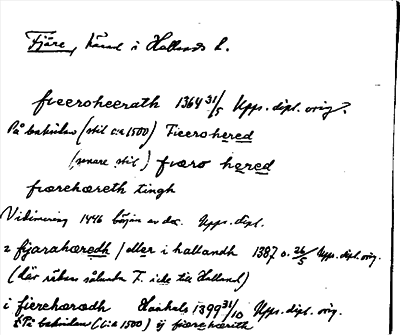 Fjäre, härad i Hallands l.
fræroheerath 1364 31/5 Upps. dipl. orig.
På baksidan (stil c:a 1500) Ficerohered
(senare stil) færo hered
færehæreth tingh
Vidimering 1446 början av dec. Upps. dipl.
i fjarahæredh / eller i hallandh 1387 o. 26/5 Upps. dipl. orig.
(här räknas således F. icke till Halland)
i fierehæradh 1399 31/10 Upps. dipl. orig.
På baksidan (c:a 1500) ij færehærith